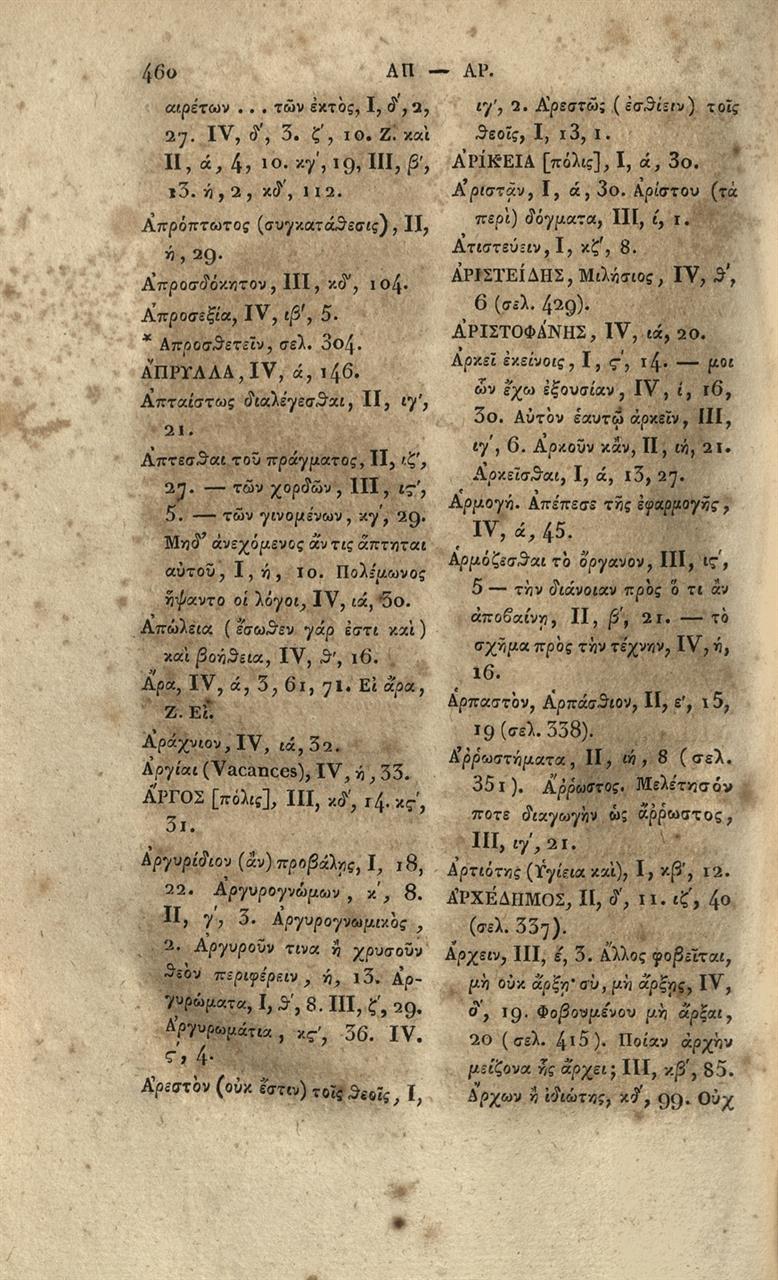 460
ΑΠ — ΑΡ.
αιρέτων ... τῶν ἐκτὸς, I, δ', 2,
27. IV, δ', 3. ζ', 10. Ζ. καὶ
II, ά, 4, 10. κγ', 19, III, β',
13. ή, 2, κδ', 112.
Ἀπρόπτωτος (συγκατάθεσις), II,
ή, 29.
Ἀπροσδόκητον, III, κδ', 104.
Ἀπροσεξία, IV, ιβ', 5.
* Ἀπροσθετεῖν, σελ. 304.
ἌΠΡΥΛΛΑ, IV, ά, 146.
Ἀπταίστως διαλέγεσθαι, II, ιγ',
21.
Ἅπτεσθαι τοῦ πράγματος, II, ιζ',
27. — τῶν χορδῶν, III, ις',
5. — τῶν γινομένων, κγ', 29.
Μηδ' ἀνεχόμενος ἄν τις ἅπτηται
αὐτοῦ, I, ή, 10. Πολέμωνος
ἥψαντο οἱ λόγοι, IV, ιά, 30.
Ἀπώλεια (ἔσωθεν γάρ ἐστι καὶ)
καὶ βοήθεια, IV, θ', 16.
Ἄρα, IV, ά, 3, 61, 71. Εἰ ἄρα,
Ζ. Εἰ.
Ἀράχνιον, IV, ιά, 32.
Ἀργίαι (Vacances), IV, ή, 33.
ἌΡΓΟΣ [πόλις], III, κδ', 14. κς',
31.
Ἀργυρίδιον (ἂν) προβάλῃς, I, 18,
22. Ἀργυρογνώμων, κ', 8.
II, γ', 3. Ἀργυρογνωμικὸς,
2. Ἀργυροῦν τινα ἢ χρυσοῦν
θεὸν περιφέρειν, ή, 13. Ἀρ-
γυρώματα, I, θ', 8. III, ζ', 29.
Ἀργυρωμάτια, κς', 36. IV.
ς', 4.
Ἀρεστὸν (οὐκ ἔστιν) τοῖς θεοῖς, I,
ιγ', 2. Ἀρεστῶς (ἐσθίειν) τοῖς
θεοῖς, I, 13, 1.
ἈΡΊΚΕΙΑ [πόλις], I, ά, 30.
Ἀριστᾷν, I, ά, 30. Ἀρίστου (τὰ
περὶ) δόγματα, III, ί, 1.
Ἀτιστεύειν, I, κζ', 8.
ἈΡΙΣΤΕΊΔΗΣ, Μιλήσιος, IV, θ',
6 (σελ. 429).
ἈΡΙΣΤΟΦΆΝΗΣ, IV, ιά, 20.
Ἀρκεῖ ἐκείνοις, I, ς', 14. — μοι
ὧν ἔχω ἐξουσίαν, IV, ί, 16,
30. Αὐτὸν ἑαυτῷ ἀρκεῖν, III,
ιγ', 6. Ἀρκοῦν κἂν, II, ιή, 21.
Ἀρκεῖσθαι, I, ά, 13, 27.
Ἁρμογή. Ἀπέπεσε τῆς ἐφαρμογῆς,
IV, ά, 45.
Ἁρμόζεσθαι τὸ ὄργανον, III, ις',
5 — τὴν διάνοιαν πρὸς ὅ τι ἂν
ἀποβαίνῃ, II, β', 21. — τὸ
σχῆμα πρὸς τὴν τέχνην, IV, ή,
16.
Ἁρπαστὸν, Ἁρπάσθιον, II, ε', 15,
19 (σελ. 338).
Ἀῤῥωστήματα, II, ιή, 8 (σελ.
351). Ἄῤῥωστος. Μελέτησόν
ποτε διαγωγὴν ὡς ἄῤῥωστος,
III, ιγ', 21.
Ἀρτιότης (Ὑγίεια καὶ), I, κβ', 12.
ἈΡΧΈΔΗΜΟΣ, II, δ', 11. ιζ', 40
(σελ. 337).
Ἄρχειν, III, έ, 3. Ἄλλος φοβεῖται,
μὴ οὐκ ἄρξῃ· σὺ, μὴ ἄρξῃς, IV,
δ', 19. Φοβουμένου μὴ ἄρξαι,
20 (σελ. 415). Ποίαν ἀρχὴν
μείζονα ἧς ἄρχει; III, κβ', 85.
Ἄρχων ἢ ἰδιώτης, κδ', 99. Οὐχ